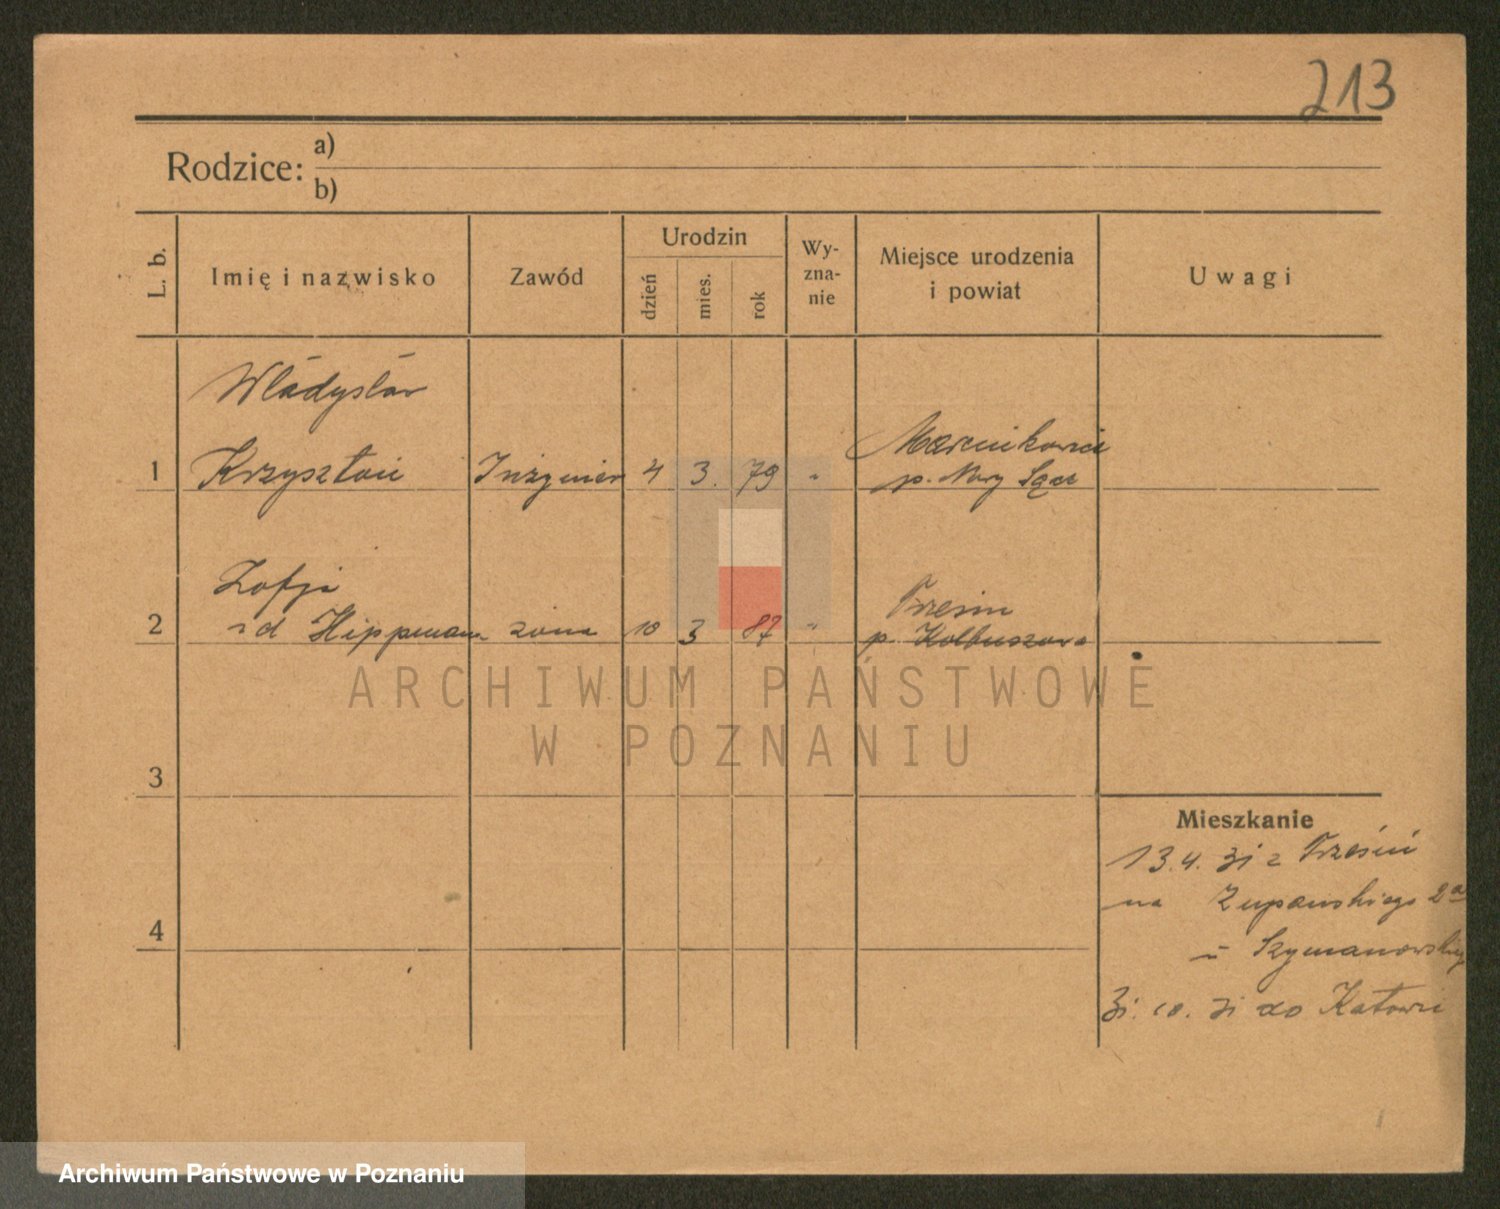 213
Rodzice: a)
b)
L. b. Imię i nazwisko Zawód Urodzin dzień mies. rok Wy-zna-nie Miejsce urodzenia i powiat Uwagi
Władysław
1 Krzysztoń Inżynier 4 3. 79 " Marcinkowice
p. Nowy Sącz
Zofja
2 zd Hippmann żona 10 3 87 " Trześń
p. Kolbuszowa
ARCHIWUM PAŃSTWOWE
W POZNANIU
3
Mieszkanie
13.4. 31 z Trześni
na Zupańskiego 2a
4
u Szymanowskiego
31. 10. 31 do Katowic
Archiwum Państwowe w Poznaniu